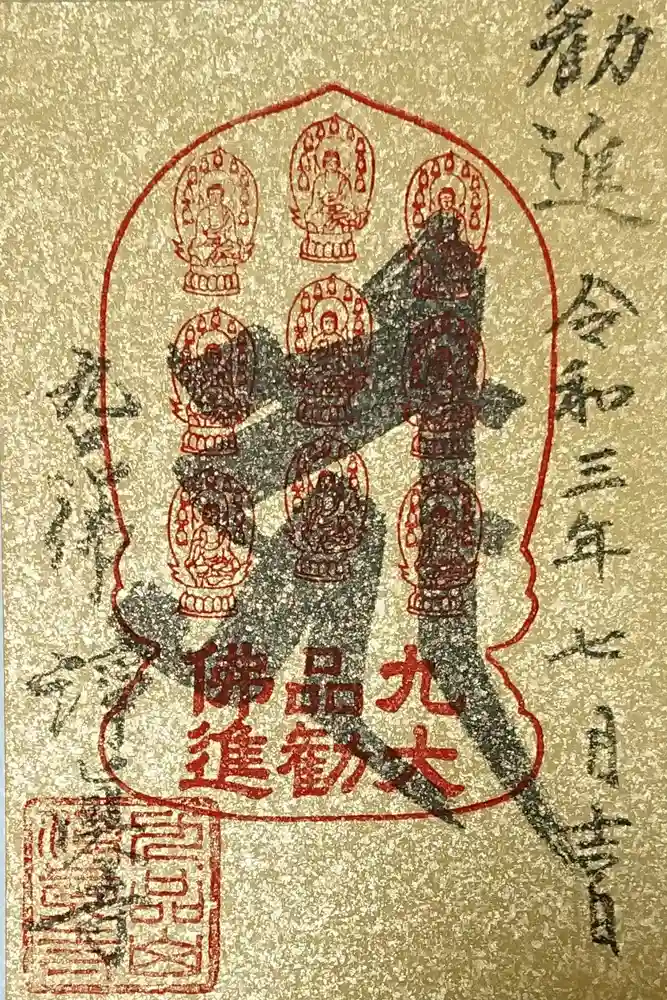 勧進
令和三年七月吉日
九品
大勧
佛進
九品佛
浄真寺